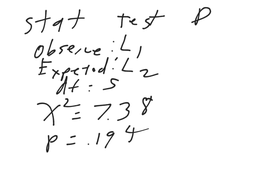 stat test P
Observe: L1
Expected: L2
df: 5
χ² = 7.38
P = .194